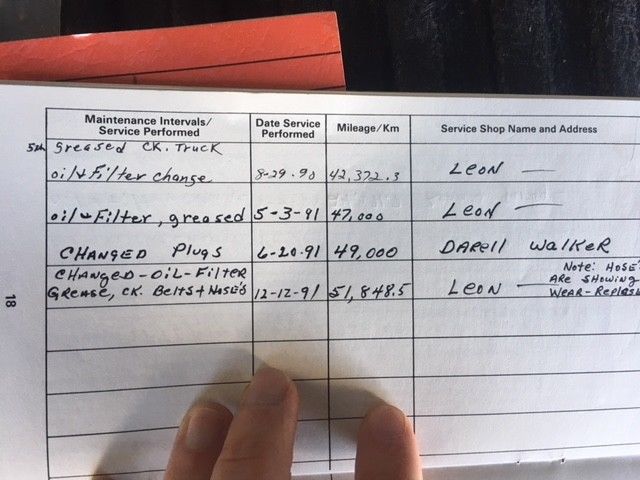 Maintenance Intervals/ Date Service Mileage/Km Service Shop Name and Address
Service Performed Performed
5th greased CK. Truck
oil & Filter change 8-29-90 42,372.3 LEON
oil & Filter, greased 5-3-91 47,000 LEON
CHANGED Plugs 6-20-91 49,000 DARell WalkeR
CHANGED-OIL-FILTER Note: HOSE'S
GREASE, CK. Belts + HOSE'S 12-12-91 51,848.5 LEON ARE SHOWING
WEAR-
18